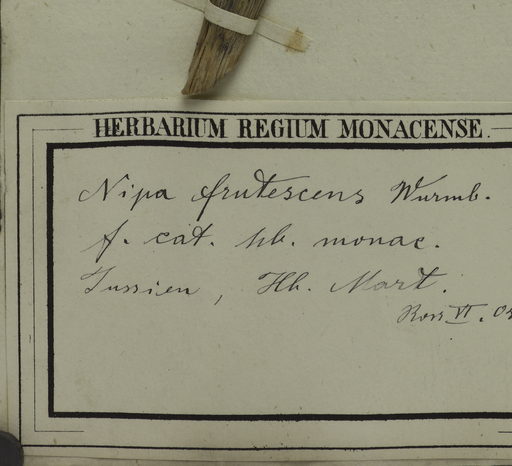 HERBARIUM REGIUM MONACENSE.
Nipa frutescens Wurmb.
f. cat. hb. monac.
Jussieu, Hb. Mart.
Ross VI. 04